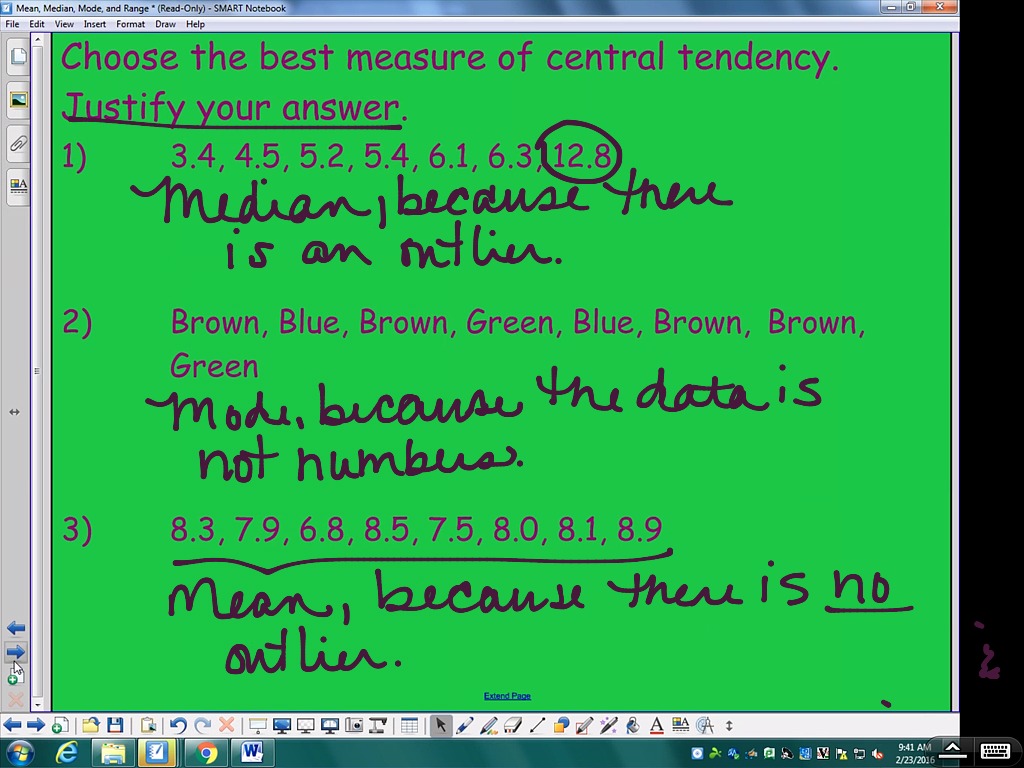 Mean, Median, Mode, and Range * (Read-Only) - SMART Notebook
File Edit View Insert Format Draw Help
Choose the best measure of central tendency.
Justify your answer.
1) 3.4, 4.5, 5.2, 5.4, 6.1, 6.3, 12.8
Median, because there
is an outlier.
2) Brown, Blue, Brown, Green, Blue, Brown, Brown,
Green
Mode, because the data is
not numbers.
3) 8.3, 7.9, 6.8, 8.5, 7.5, 8.0, 8.1, 8.9
Mean, because there is no
outlier.
Extend Page
9:41 AM
2/23/2016